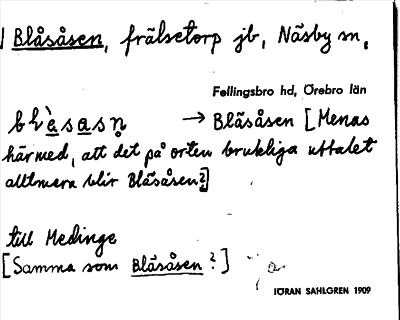 Blåsåsen, frälsetorp jb, Näsby sn,
Fellingsbro hd, Örebro län
→ Blåsåsen [Menas
härmed, att det på orten brukliga uttalet
alltmera blir Blåsåsen?]
till Medinge
[Samma som Blåsåsen?]
JÖRAN SAHLGREN 1909